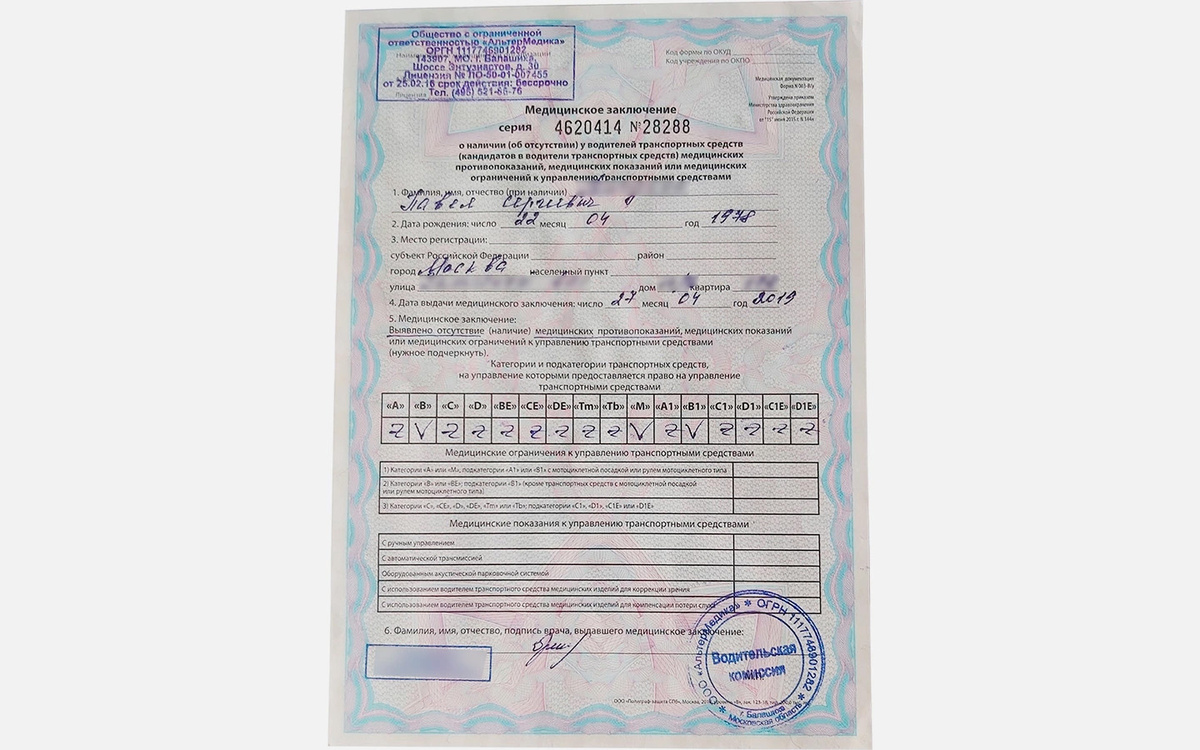 Общество с ограниченной
ответственностью «АльтерМедика»
ОРГН 1117746901282
143907, МО, г. Балашиха,
Шоссе Энтузиастов, д. 30
Лицензия № ЛО-50-01-007455
от 25.02.16 срок действия: бессрочно
Тел. (495) 521-86-76
Код формы по ОКУД
Код учреждения по ОКПО
Медицинская документация
Форма N 003-В/у
Утверждена приказом
Министерства здравоохранения
Российской Федерации
от "15" июня 2015 г. N 344н
Медицинское заключение
серия 4620414 №28288
о наличии (об отсутствии) у водителей транспортных средств
(кандидатов в водители транспортных средств) медицинских
противопоказаний, медицинских показаний или медицинских
ограничений к управлению транспортными средствами
1. Фамилия, имя, отчество (при наличии)
Павел Сергиевич
2. Дата рождения: число 22 месяц 04 год 1978
3. Место регистрации:
субъект Российской Федерации район
город Москва населенный пункт
улица дом квартира
4. Дата выдачи медицинского заключения: число 27 месяц 04 год 2019
5. Медицинское заключение:
Выявлено отсутствие (наличие) медицинских противопоказаний, медицинских показаний
или медицинских ограничений к управлению транспортными средствами
(нужное подчеркнуть).
Категории и подкатегории транспортных средств,
на управление которыми предоставляется право на управление
транспортными средствами
«A» «B» «C» «D» «BE» «CE» «DE» «Tm» «Tb» «M» «A1» «B1» «C1» «D1» «C1E» «D1E»
Z V Z Z Z Z Z Z Z V Z V Z Z Z Z
Медицинские ограничения к управлению транспортными средствами
1) Категории «A» или «M», подкатегории «A1» или «B1» с мотоциклетной посадкой или рулем мотоциклетного типа
2) Категории «B» или «BE», подкатегории «B1» (кроме транспортных средств с мотоциклетной посадкой
или рулем мотоциклетного типа)
3) Категории «C», «CE», «D», «DE», «Tm» или «Tb»; подкатегории «C1», «D1», «C1E» или «D1E»
Медицинские показания к управлению транспортными средствами
С ручным управлением
С автоматической трансмиссией
Оборудованным акустической парковочной системой
С использованием водителем транспортного средства медицинских изделий для коррекции зрения
С использованием водителем транспортного средства медицинских изделий для компенсации потери слуха
6. Фамилия, имя, отчество, подпись врача, выдавшего медицинское заключение:
ООО «АльтерМедика» * ОГРН 1117746901282 *
Водительская
комиссия
г. Балашиха
Московская область